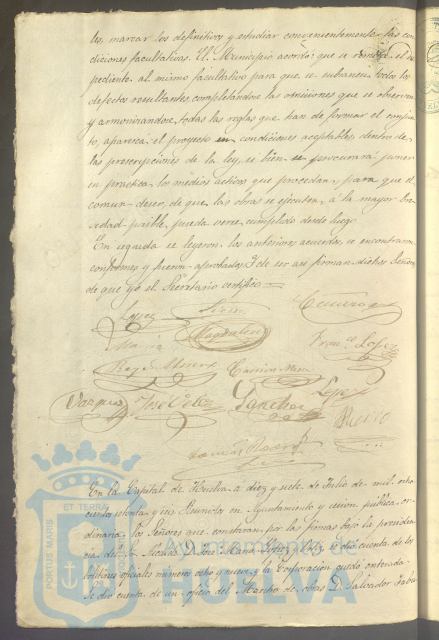 les, marcar los definitivos y estudiar convenientemente las con
diciones facultativas. El Municipio acordó: que se remita el es
pediente al mismo facultativo para que se subsanen todos los
defectos resultantes, completandose las omisiones que se observan
y armonizandose todas las reglas que han de formar el conjun-
to, aparezca el proyecto en condiciones aceptables dentro de
las prescripciones de la ley, se bien se procurará poner
en practica los medios activos que procedan, para que el
comun deseo, de que las obras se ejecuten, á la mayor bre
vedad posible, pueda verse cumplido desde luego.
En seguida se leyeron los anteriores acuerdos, se encontraron
conformes y fueron aprobados. Y de ser asi firman dichos Señores
de que yo el Secretario certifico
Lopez
Maria Magdalena
Franco. Lopez
Garcia
Vazquez José Velez Sanchez Lopez
Rueiro
En la Capital de Huelva á diez y siete de Julio de mil ocho
cientos setenta y seis Reunidos en Ayuntamiento y sesion publica or
dinaria, los Señores que constaran por las firmas bajo la presiden
cia del Sr. Alcalde D. José Maria Lopez y Lopez se dió cuenta de los
boletines oficiales numeros ocho y nueve, y la Corporacion quedó enterada.
Se dió cuenta de un oficio del Maestro de obras D. Salvador
PORTUS MARIS
ET TERRA
Ayuntamiento de
HUELVA